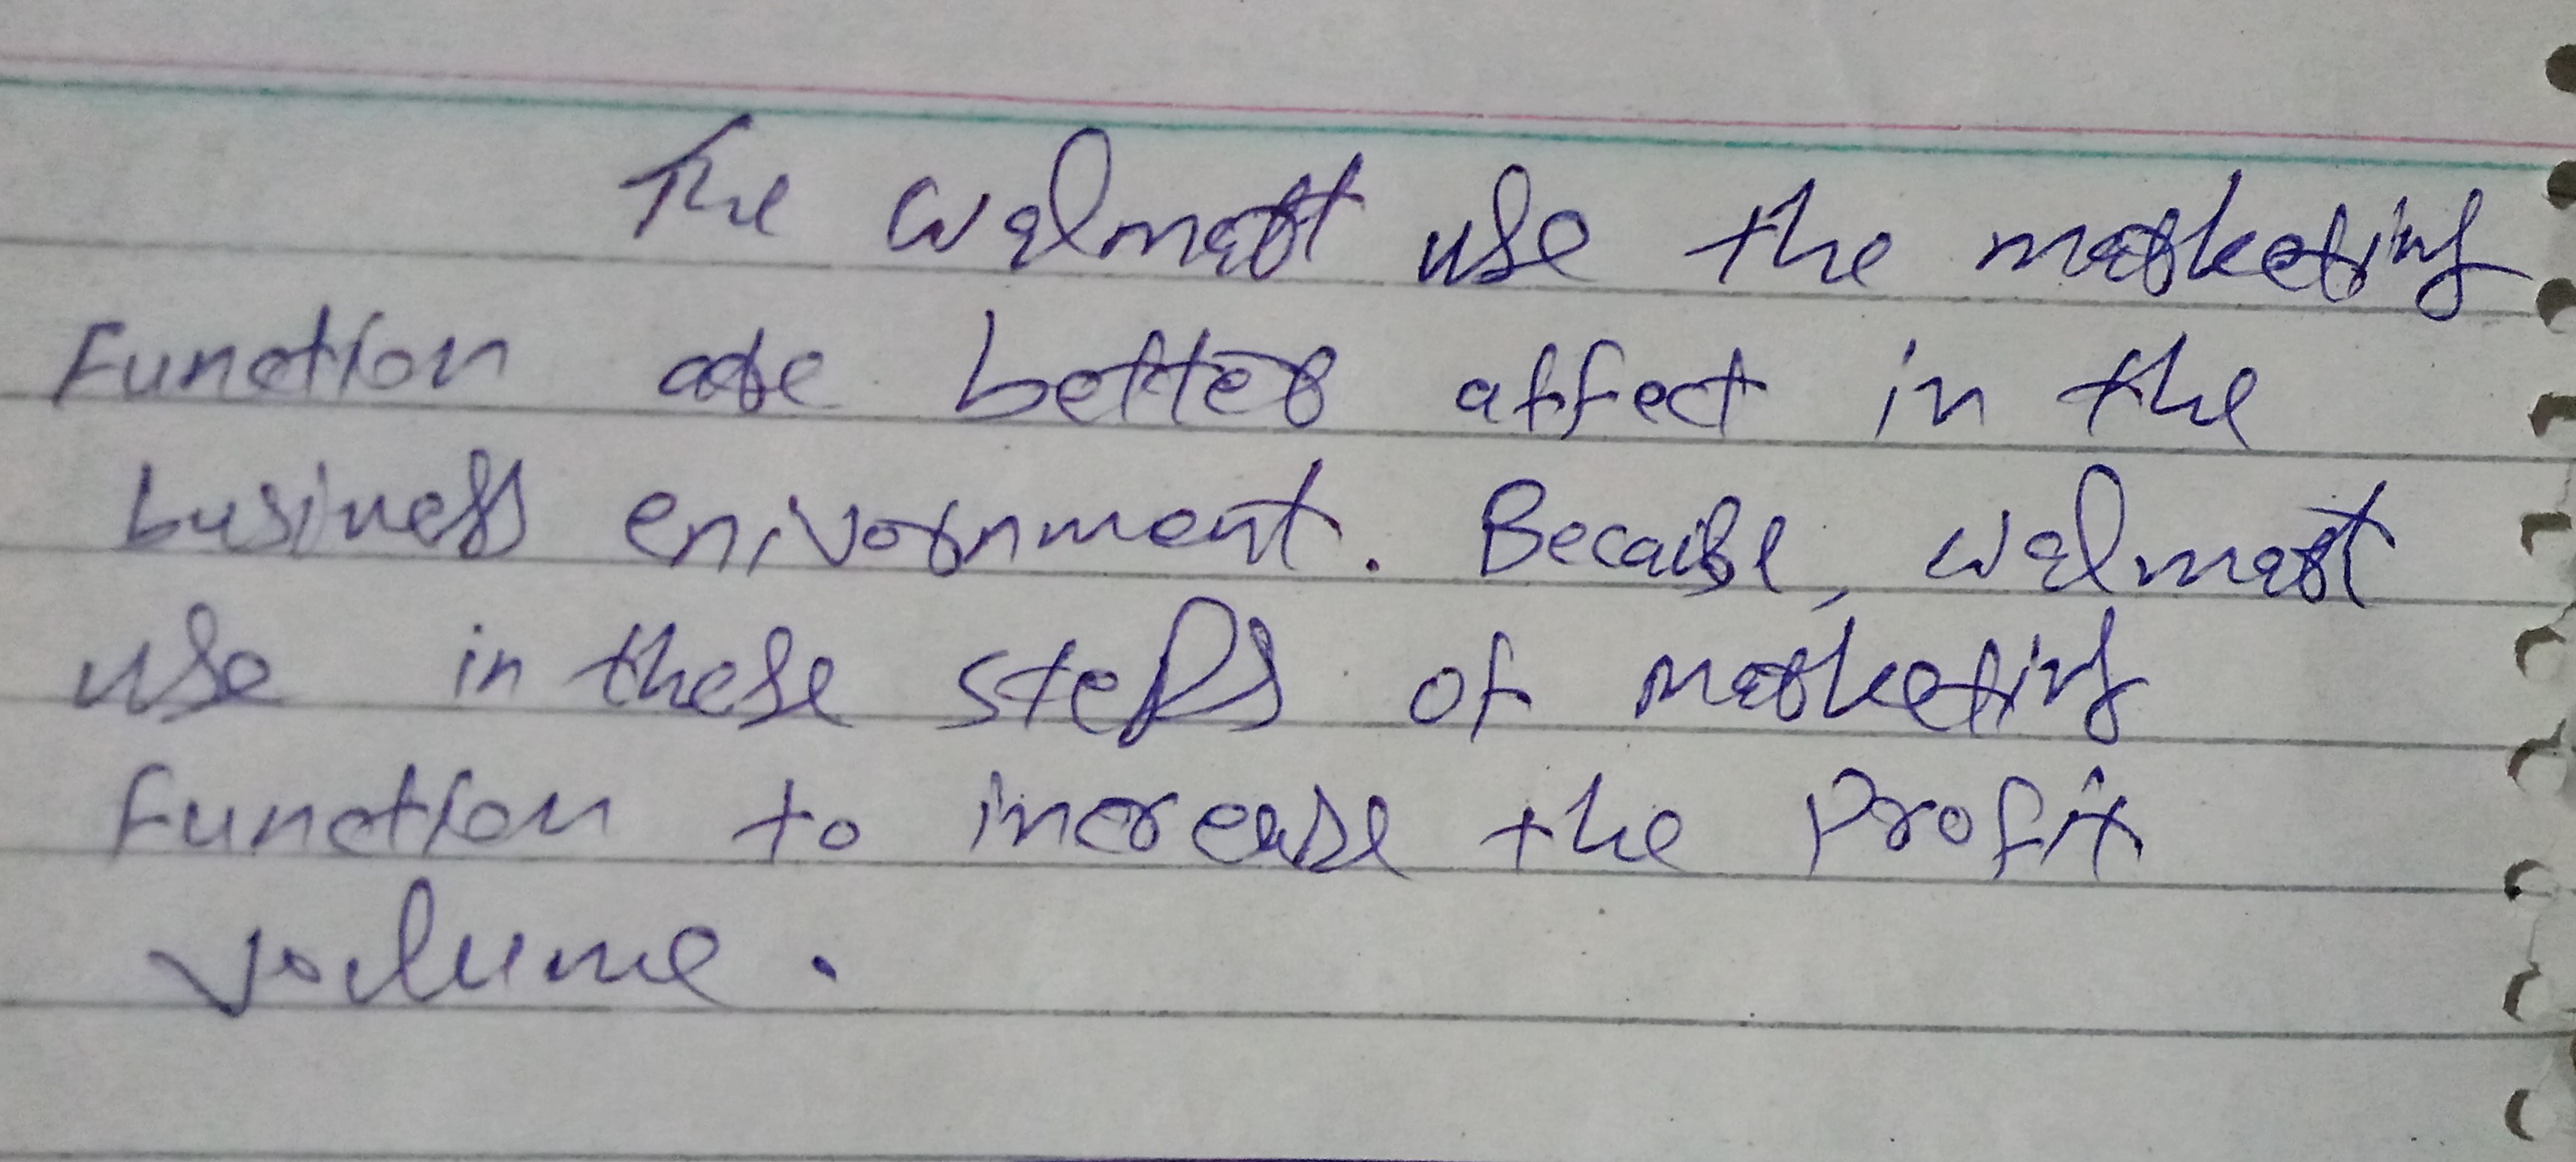 The walmart use the marketing
Function are better affect in the
business enivornment. Because, walmart
use in these steps of marketing
function to increase the Profit
volume.